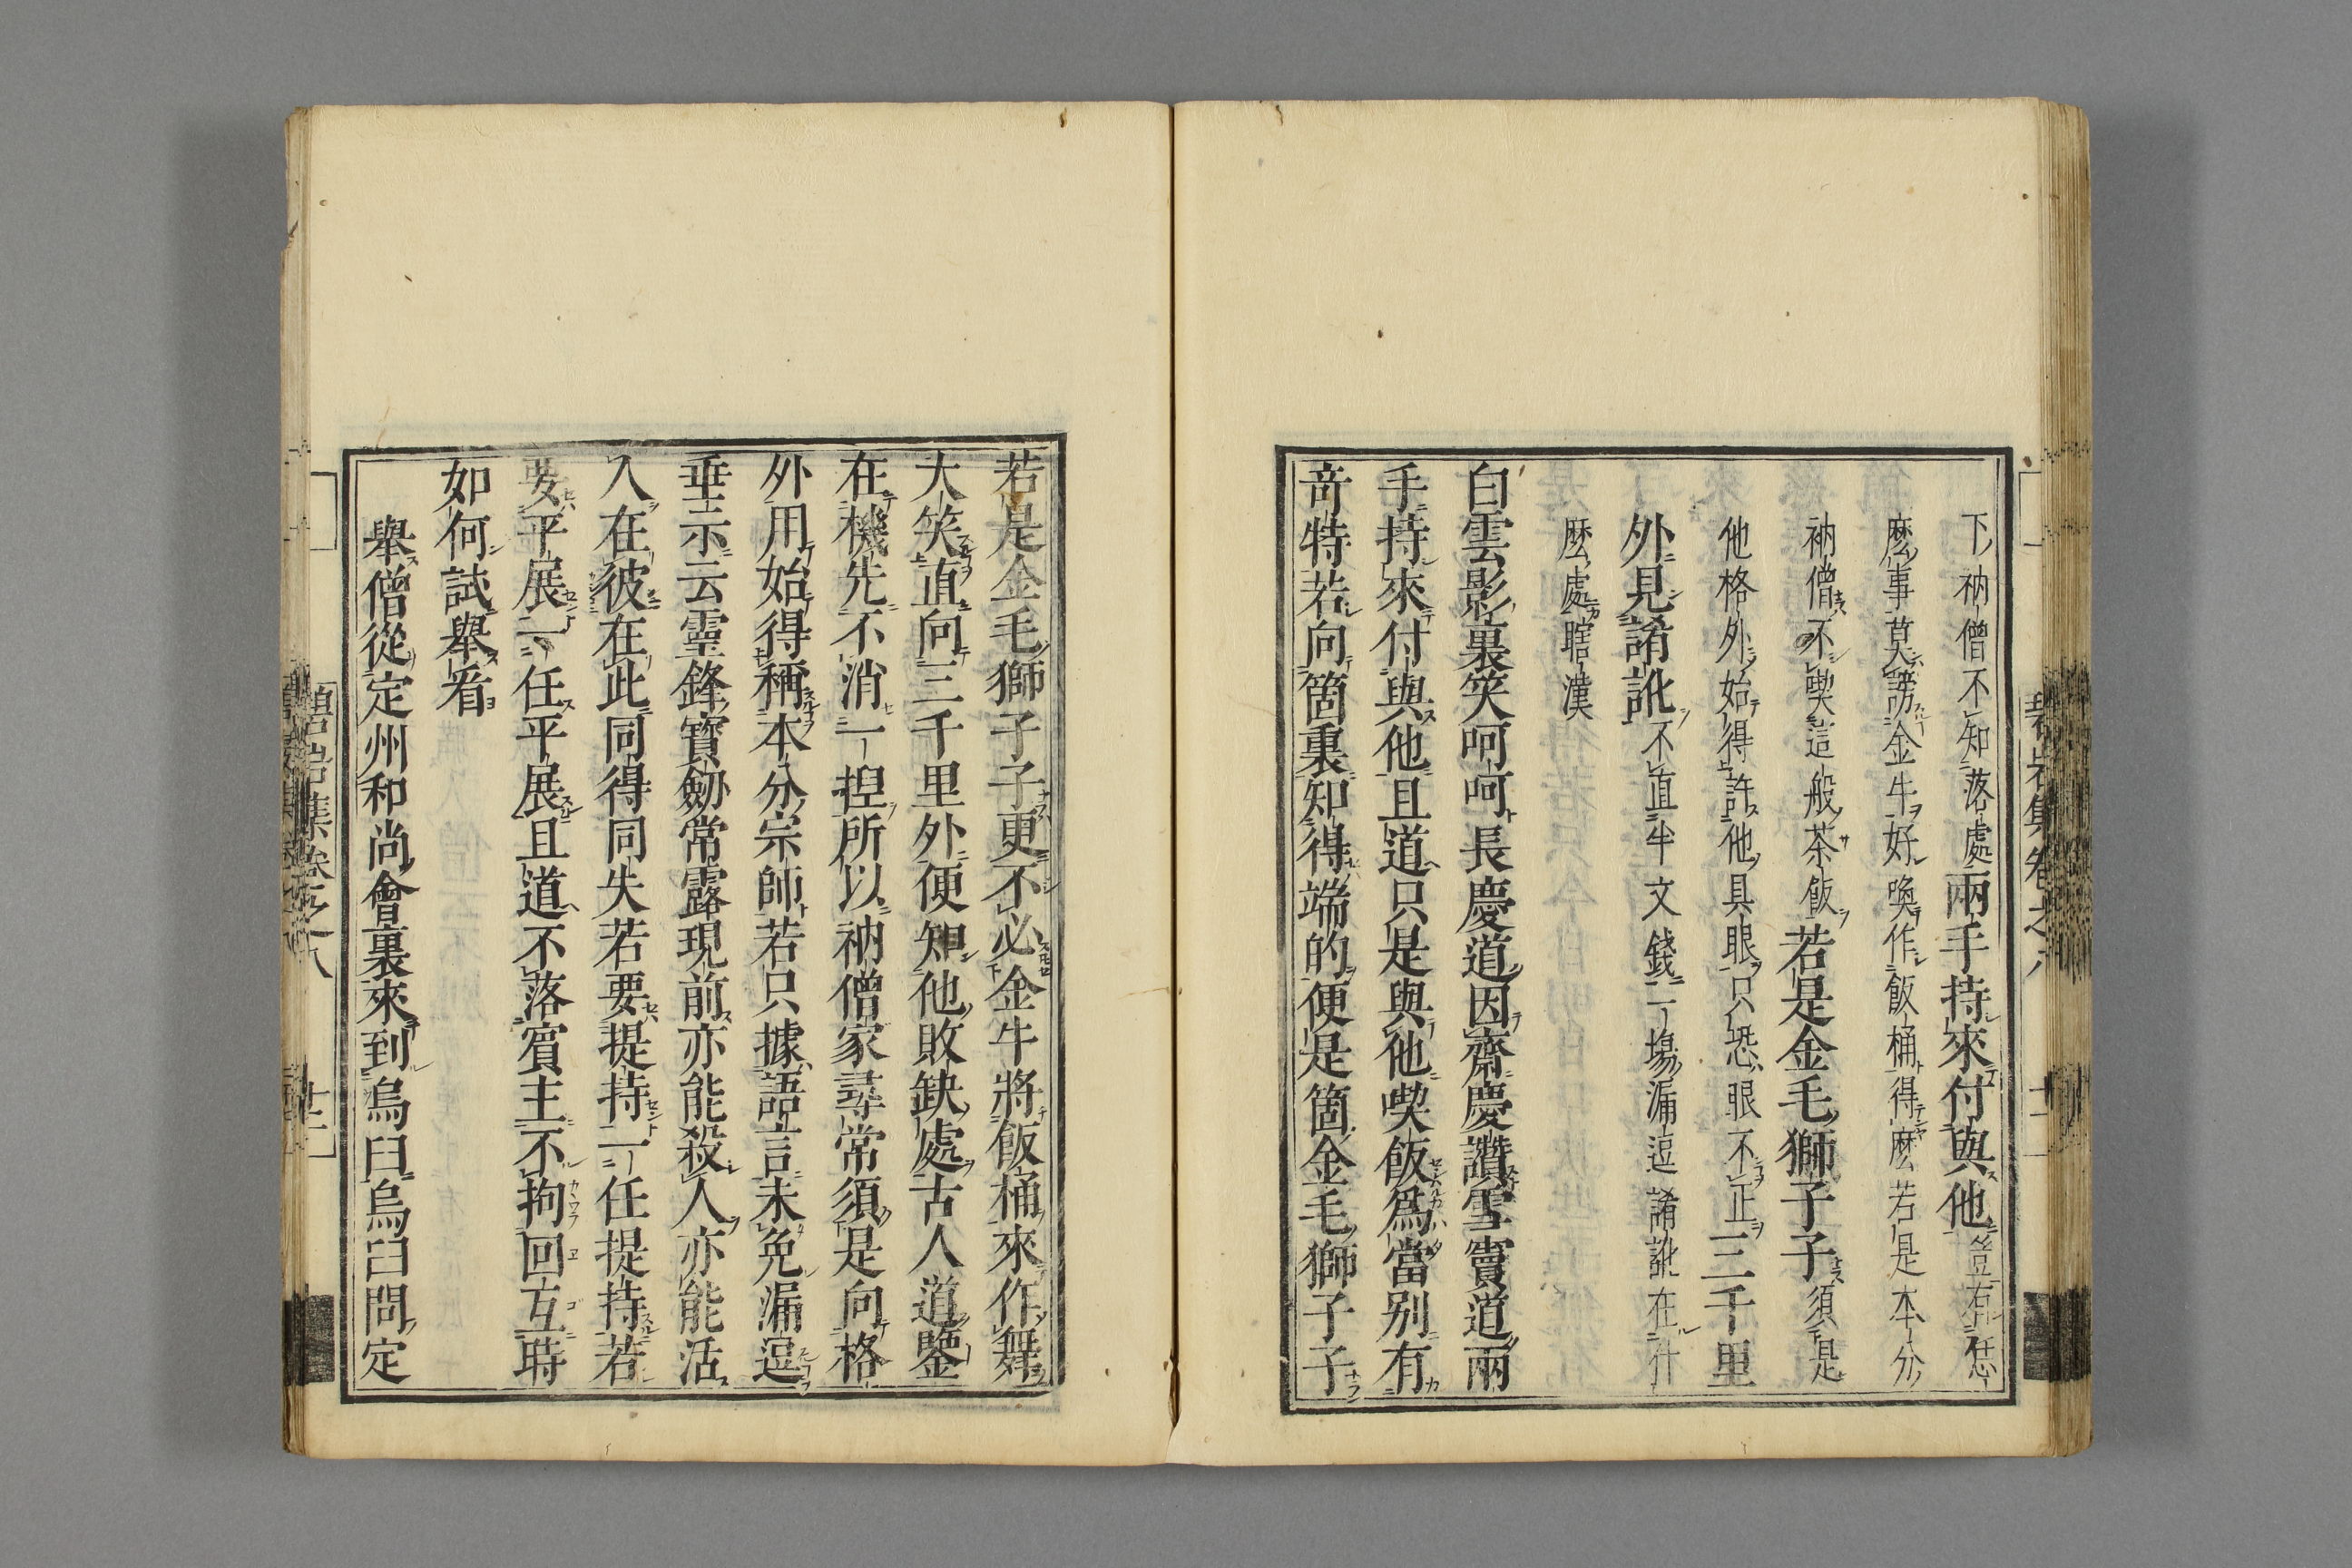 下衲僧不知落處兩手持來付與他豈有恁
麽事莫謗金牛好喚作飯桶得麽若是本分
衲僧不喫這般茶飯若是金毛獅子子須是
他格外始得許他具眼只恐眼不正三千里
外見誵訛不直半文錢一場漏逗誵訛在什
麽處瞎漢
白雲影裏笑呵呵長慶道因齋慶讚雪竇道兩
手持來付與他且道只是與他喫飯爲當別有
奇特若向箇裏知得端的便是箇金毛獅子子
若是金毛獅子子更不必金牛將飯桶來作舞
大笑直向三千里外便知他敗缺處古人道鑒
在機先不消一揑所以衲僧家尋常須是向格
外用始得稱本分宗師若只據語言未免漏逗
垂示云靈鋒寶劒常露現前亦能殺人亦能活
人在彼在此同得同失若要提持一任提持若
要平展一任平展且道不落賓主不拘回互時
如何試擧看
擧僧從定州和尚會裏來到烏臼烏臼問定
碧岩集卷之八